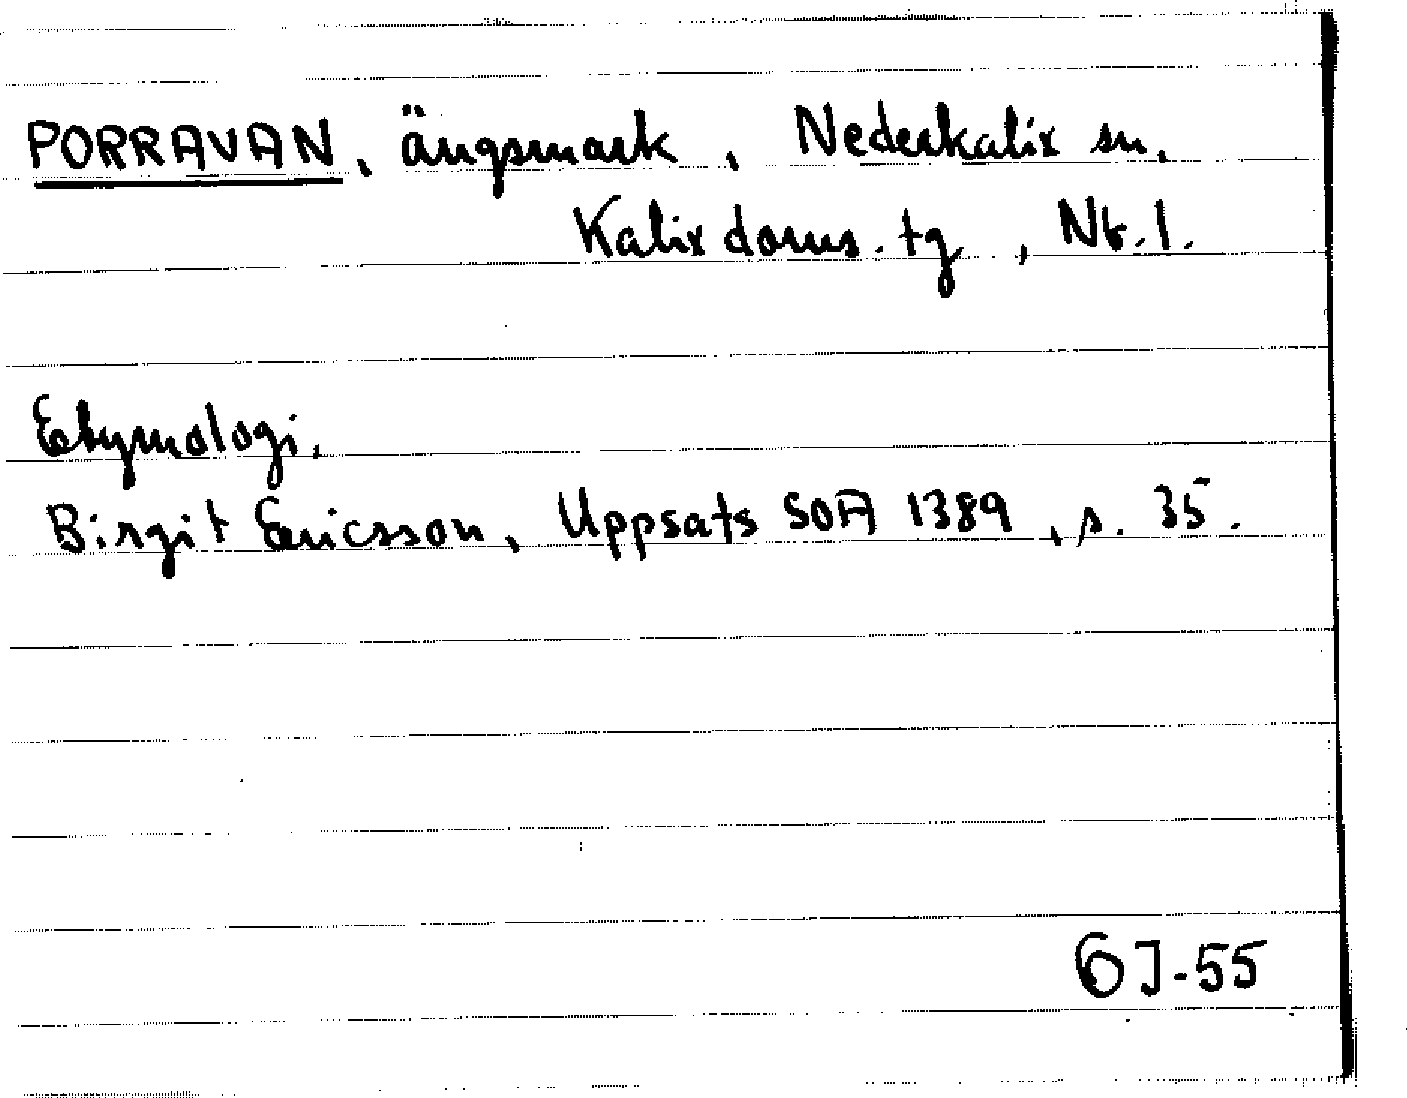 PORRAVAN, ängsmark, Nederkalix sn.
Kalix doms. tg, Nb. l.
Etymologi.
Birgit Ericsson, Uppsats SOA 1389, s. 35.
GJ-55